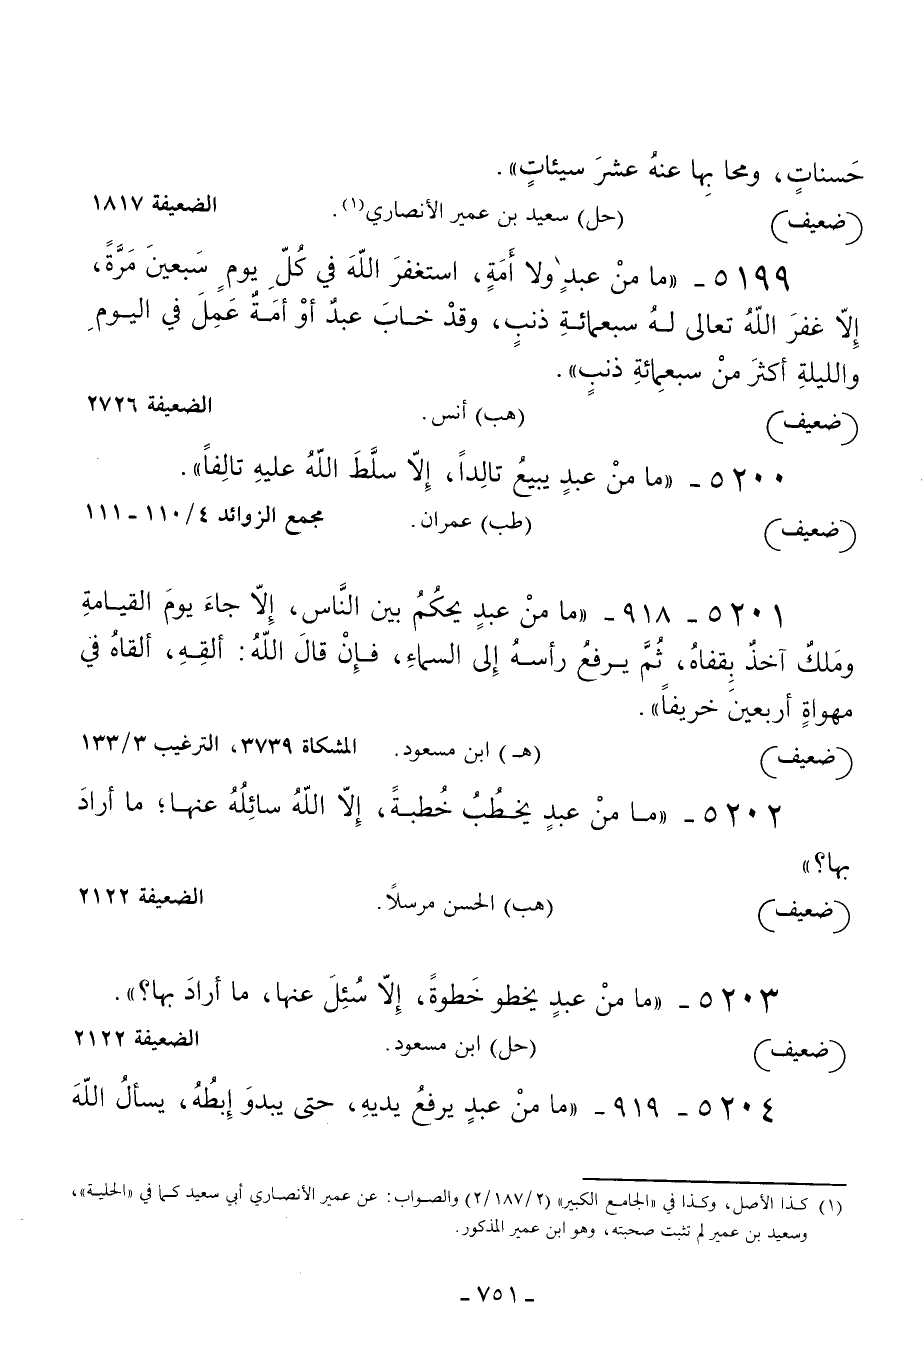 حَسناتٍ، ومحا بِها عنهُ عشرَ سيئاتٍ».
(ضعيف) (حل) سعيد بن عمير الأنصاري(١). الضعيفة ١٨١٧
٥١٩٩ ـ «ما منْ عبدٍ ولا أَمَةٍ، استغفرَ اللّهَ في كُلِّ يومٍ سَبعينَ مَرَّةً،
إِلّا غفرَ اللّهُ تعالى لـهُ سبعمائـةِ ذنبٍ، وقدْ خـابَ عبدٌ أوْ أمَـةٌ عَمِلَ في اليـومِ
والليلةِ أكثرَ منْ سبعمِائةِ ذنبٍ».
(ضعيف) (هب) أنس. الضعيفة ٢٧٢٦
٥٢٠٠ ـ «ما منْ عبدٍ يبيعُ تالِداً، إِلّا سلَّطَ اللّهُ عليهِ تالِفاً».
(ضعيف) (طب) عمران. مجمع الزوائد ٤/١١٠ ـ ١١١
٥٢٠١ ـ ٩١٨ ـ «ما منْ عبدٍ يحكُمُ بين النَّاس، إِلّا جاءَ يومَ القيـامةِ
ومَلكٌ آخذٌ بِقفاهُ، ثُمَّ يـرفعُ رأسـهُ إلى السماءِ، فـإِنْ قالَ اللّهُ: ألقِـهِ، ألقاهُ في
مهواةٍ أربعينَ خريفاً».
(ضعيف) (هـ) ابن مسعود. المشكاة ٣٧٣٩، الترغيب ٣/١٣٣
٥٢٠٢ ـ «مـا منْ عبدٍ يخـطُبُ خُطبـةً، إِلّا اللّهُ سائِلُهُ عنهـا؛ ما أرادَ
بها؟»
(ضعيف) (هب) الحسن مرسلاً. الضعيفة ٢١٢٢
٥٢٠٣ ـ «ما منْ عبدٍ يخطو خَطوةً، إِلّا سُئِلَ عنها، ما أرادَ بها؟».
(ضعيف) (حل) ابن مسعود. الضعيفة ٢١٢٢
٥٢٠٤ ـ ٩١٩ ـ «ما منْ عبدٍ يرفعُ يديهِ، حتى يبدوَ إِبطُهُ، يسألُ اللّهَ
(١) كـذا الأصل، وكـذا في «الجامع الكبير» (٢/١٨٧/٢) والصـواب: عن عمير الأنصاري أبي سعيد كـما في «الحلية»،
وسعيد بن عمير لم تثبت صحبته، وهو ابن عمير المذكور.
ـ ٧٥١ ـ